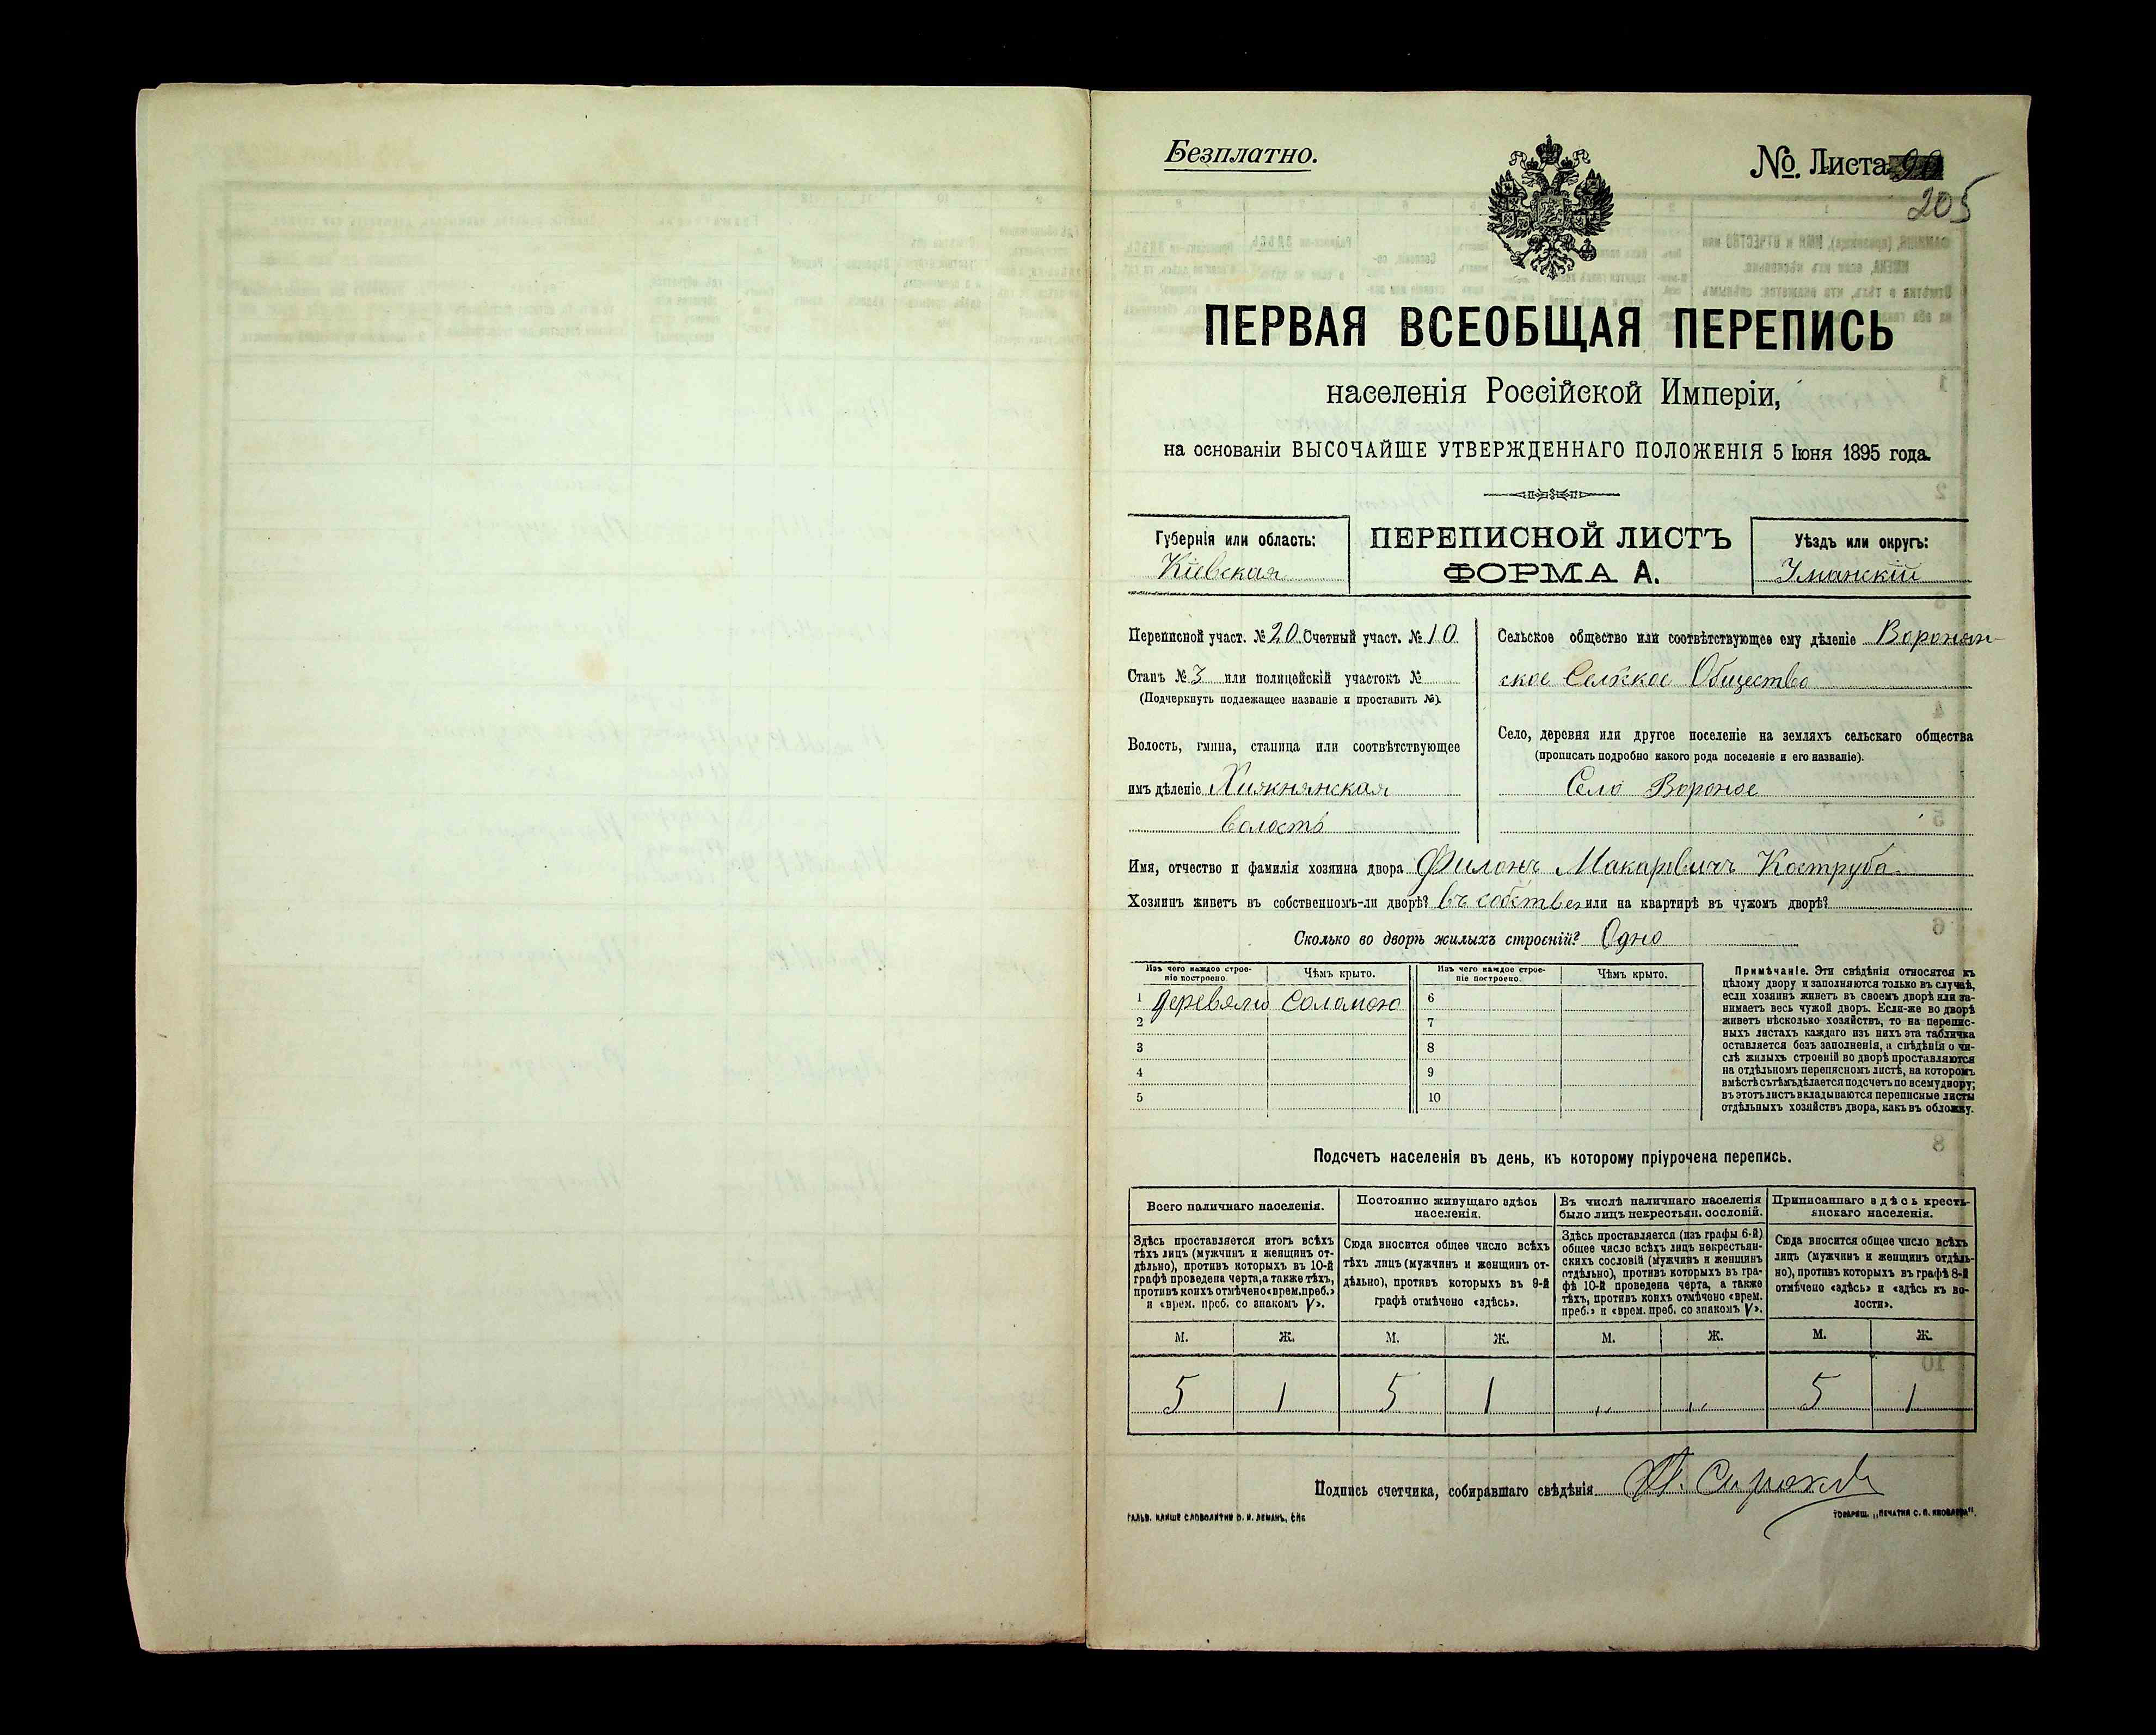 Безплатно.
№. Листа 90
205
ПЕРВАЯ ВСЕОБЩАЯ ПЕРЕПИСЬ
населенія Россійской Имперіи,
на основаніи ВЫСОЧАЙШЕ УТВЕРЖДЕННАГО ПОЛОЖЕНІЯ 5 Іюня 1895 года.
Губернія или область:
Кіевская
ПЕРЕПИСНОЙ ЛИСТЪ
ФОРМА А.
Уѣздъ или округъ:
Уманскій
Переписной участ. № 20 Счетный участ. № 10
Станъ № 3 или полицейскій участокъ №
(Подчеркнуть подлежащее названіе и проставить №).
Волость, гмина, станица или соотвѣтствующее
имъ дѣленіе
волость
Сельское общество или соотвѣтствующее ему дѣленіе Воронян-
ское Сельское Общество
Село, деревня или другое поселеніе на земляхъ сельскаго общества
(прописать подробно какого рода поселеніе и его названіе).
Село Вороное
Имя, отчество и фамилія хозяина двора Филонъ Макаровичъ Коструба
Хозяинъ живетъ въ собственномъ-ли дворѣ? въ собствен или на квартирѣ въ чужомъ дворѣ?
Сколько во дворѣ жилыхъ строеній? Одно
Изъ чего каждое строе-
ніе построено.
Чѣмъ крыто.
Изъ чего каждое строе-
ніе построено.
Чѣмъ крыто.
1 Деревяно Соломою 6
2 7
3 8
4 9
5 10
Примѣчаніе. Эти свѣдѣнія относятся къ
цѣлому двору и заполняются только въ случаѣ,
если хозяинъ живетъ въ своемъ дворѣ или за-
нимаетъ весь чужой дворъ. Если-же во дворѣ
живетъ нѣсколько хозяйствъ, то на перепис-
ныхъ листахъ каждаго изъ нихъ эта табличка
оставляется безъ заполненія, а свѣдѣнія о чи-
слѣ жилыхъ строеній во дворѣ проставляются
на отдѣльномъ переписномъ листѣ, на которомъ
вмѣстѣ съ тѣмъ дѣлается подсчетъ по всему двору;
въ этотъ листъ вкладываются переписные листы
отдѣльныхъ хозяйствъ двора, какъ въ обложку.
Подсчетъ населенія въ день, къ которому пріурочена перепись.
Всего наличнаго населенія.
Постоянно живущаго здѣсь
населенія.
Въ числѣ наличнаго населенія
было лицъ некрестьян. сословій.
Приписаннаго здѣсь кресть-
янскаго населенія.
Здѣсь проставляется итогъ всѣхъ
тѣхъ лицъ (мужчинъ и женщинъ от-
дѣльно), противъ которыхъ въ 10-й
графѣ проведена черта, а также тѣхъ,
противъ коихъ отмѣчено «врем. преб.»
и «врем. преб. со знакомъ V».
Сюда вносится общее число всѣхъ
тѣхъ лицъ (мужчинъ и женщинъ от-
дѣльно), противъ которыхъ въ 9-й
графѣ отмѣчено «здѣсь».
Здѣсь проставляется (изъ графы 6-й)
общее число всѣхъ лицъ некрестьян-
скихъ сословій (мужчинъ и женщинъ
отдѣльно), противъ которыхъ въ гра-
фѣ 10-й проведена черта, а также
тѣхъ, противъ коихъ отмѣчено «врем.
преб.» и «врем. преб. со знакомъ V».
Сюда вносится общее число всѣхъ
лицъ (мужчинъ и женщинъ отдѣль-
но), противъ которыхъ въ графѣ 8-й
отмѣчено «здѣсь» и «здѣсь къ во-
лости».
М. Ж. М. Ж. М. Ж. М. Ж.
5 1 5 1 „ „ 5 1
Подпись счетчика, собиравшаго свѣдѣнія
ГАЛЬВ. КЛИШЕ СЛОВОЛИТНИ О. И. ЛЕМАНЪ, СПБ
ТОВАРИЩ. „ПЕЧАТНЯ С. П. ЯКОВЛЕВА".